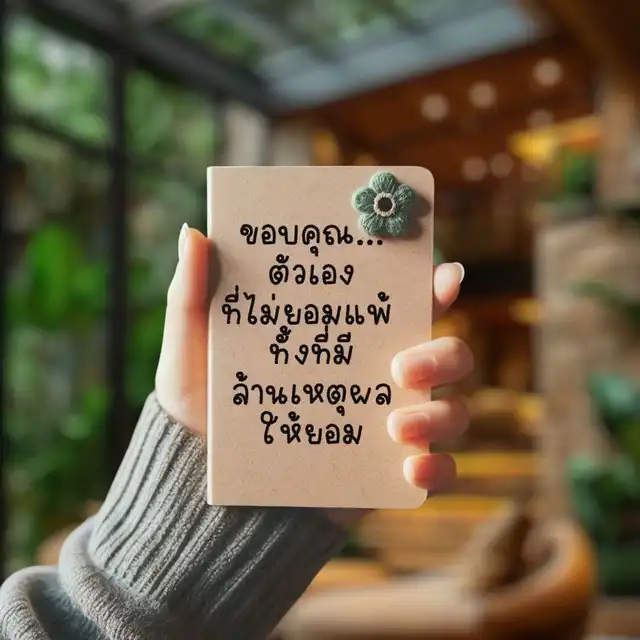 ขอบคุณ...
ตัวเอง
ที่ไม่ยอมแพ้
ทั้งที่มี
ล้านเหตุผล
ให้ยอม